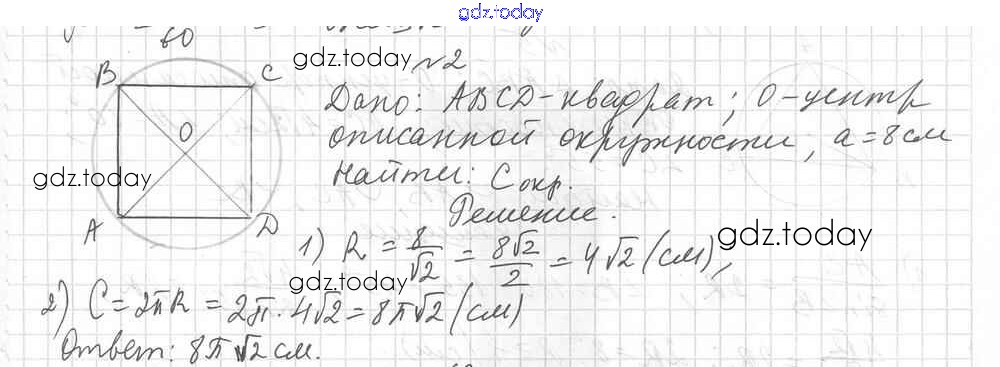 gdz.today
60
gdz.today №2
B C
Дано: ABCD-квадрат; O-центр
O
описанной окружности, a=8см
gdz.today
Найти: C окр.
A D
Решение.
1) R = 8/√2 = 8√2/2 = 4√2 (см),
gdz.today
gdz.today
2) C = 2πR = 2π·4√2 = 8π√2 (см)
Ответ: 8π√2 см.